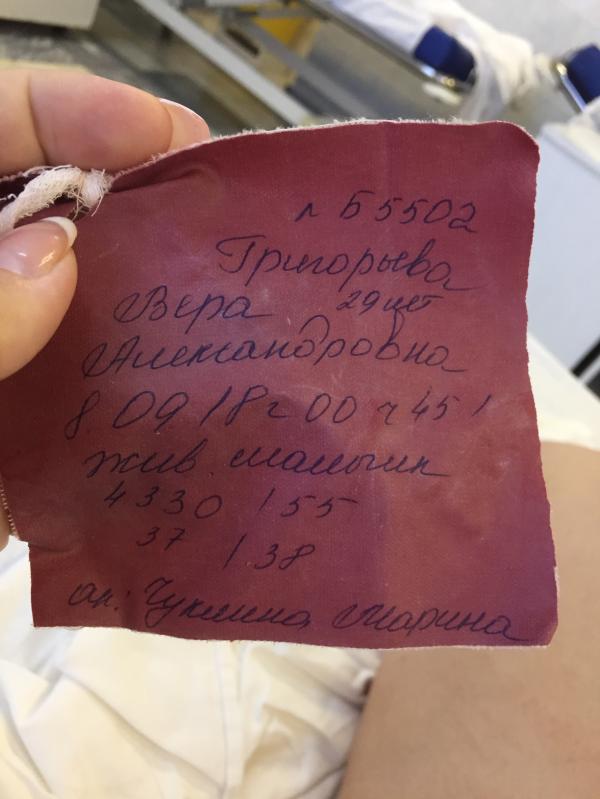 л Б5502
Григорьева
Вера 29 лет
Александровна
8.09.18 г 00 ч 45'
жив. мальчик
4330 / 55
37 / 38
ак: Чуклина Марина